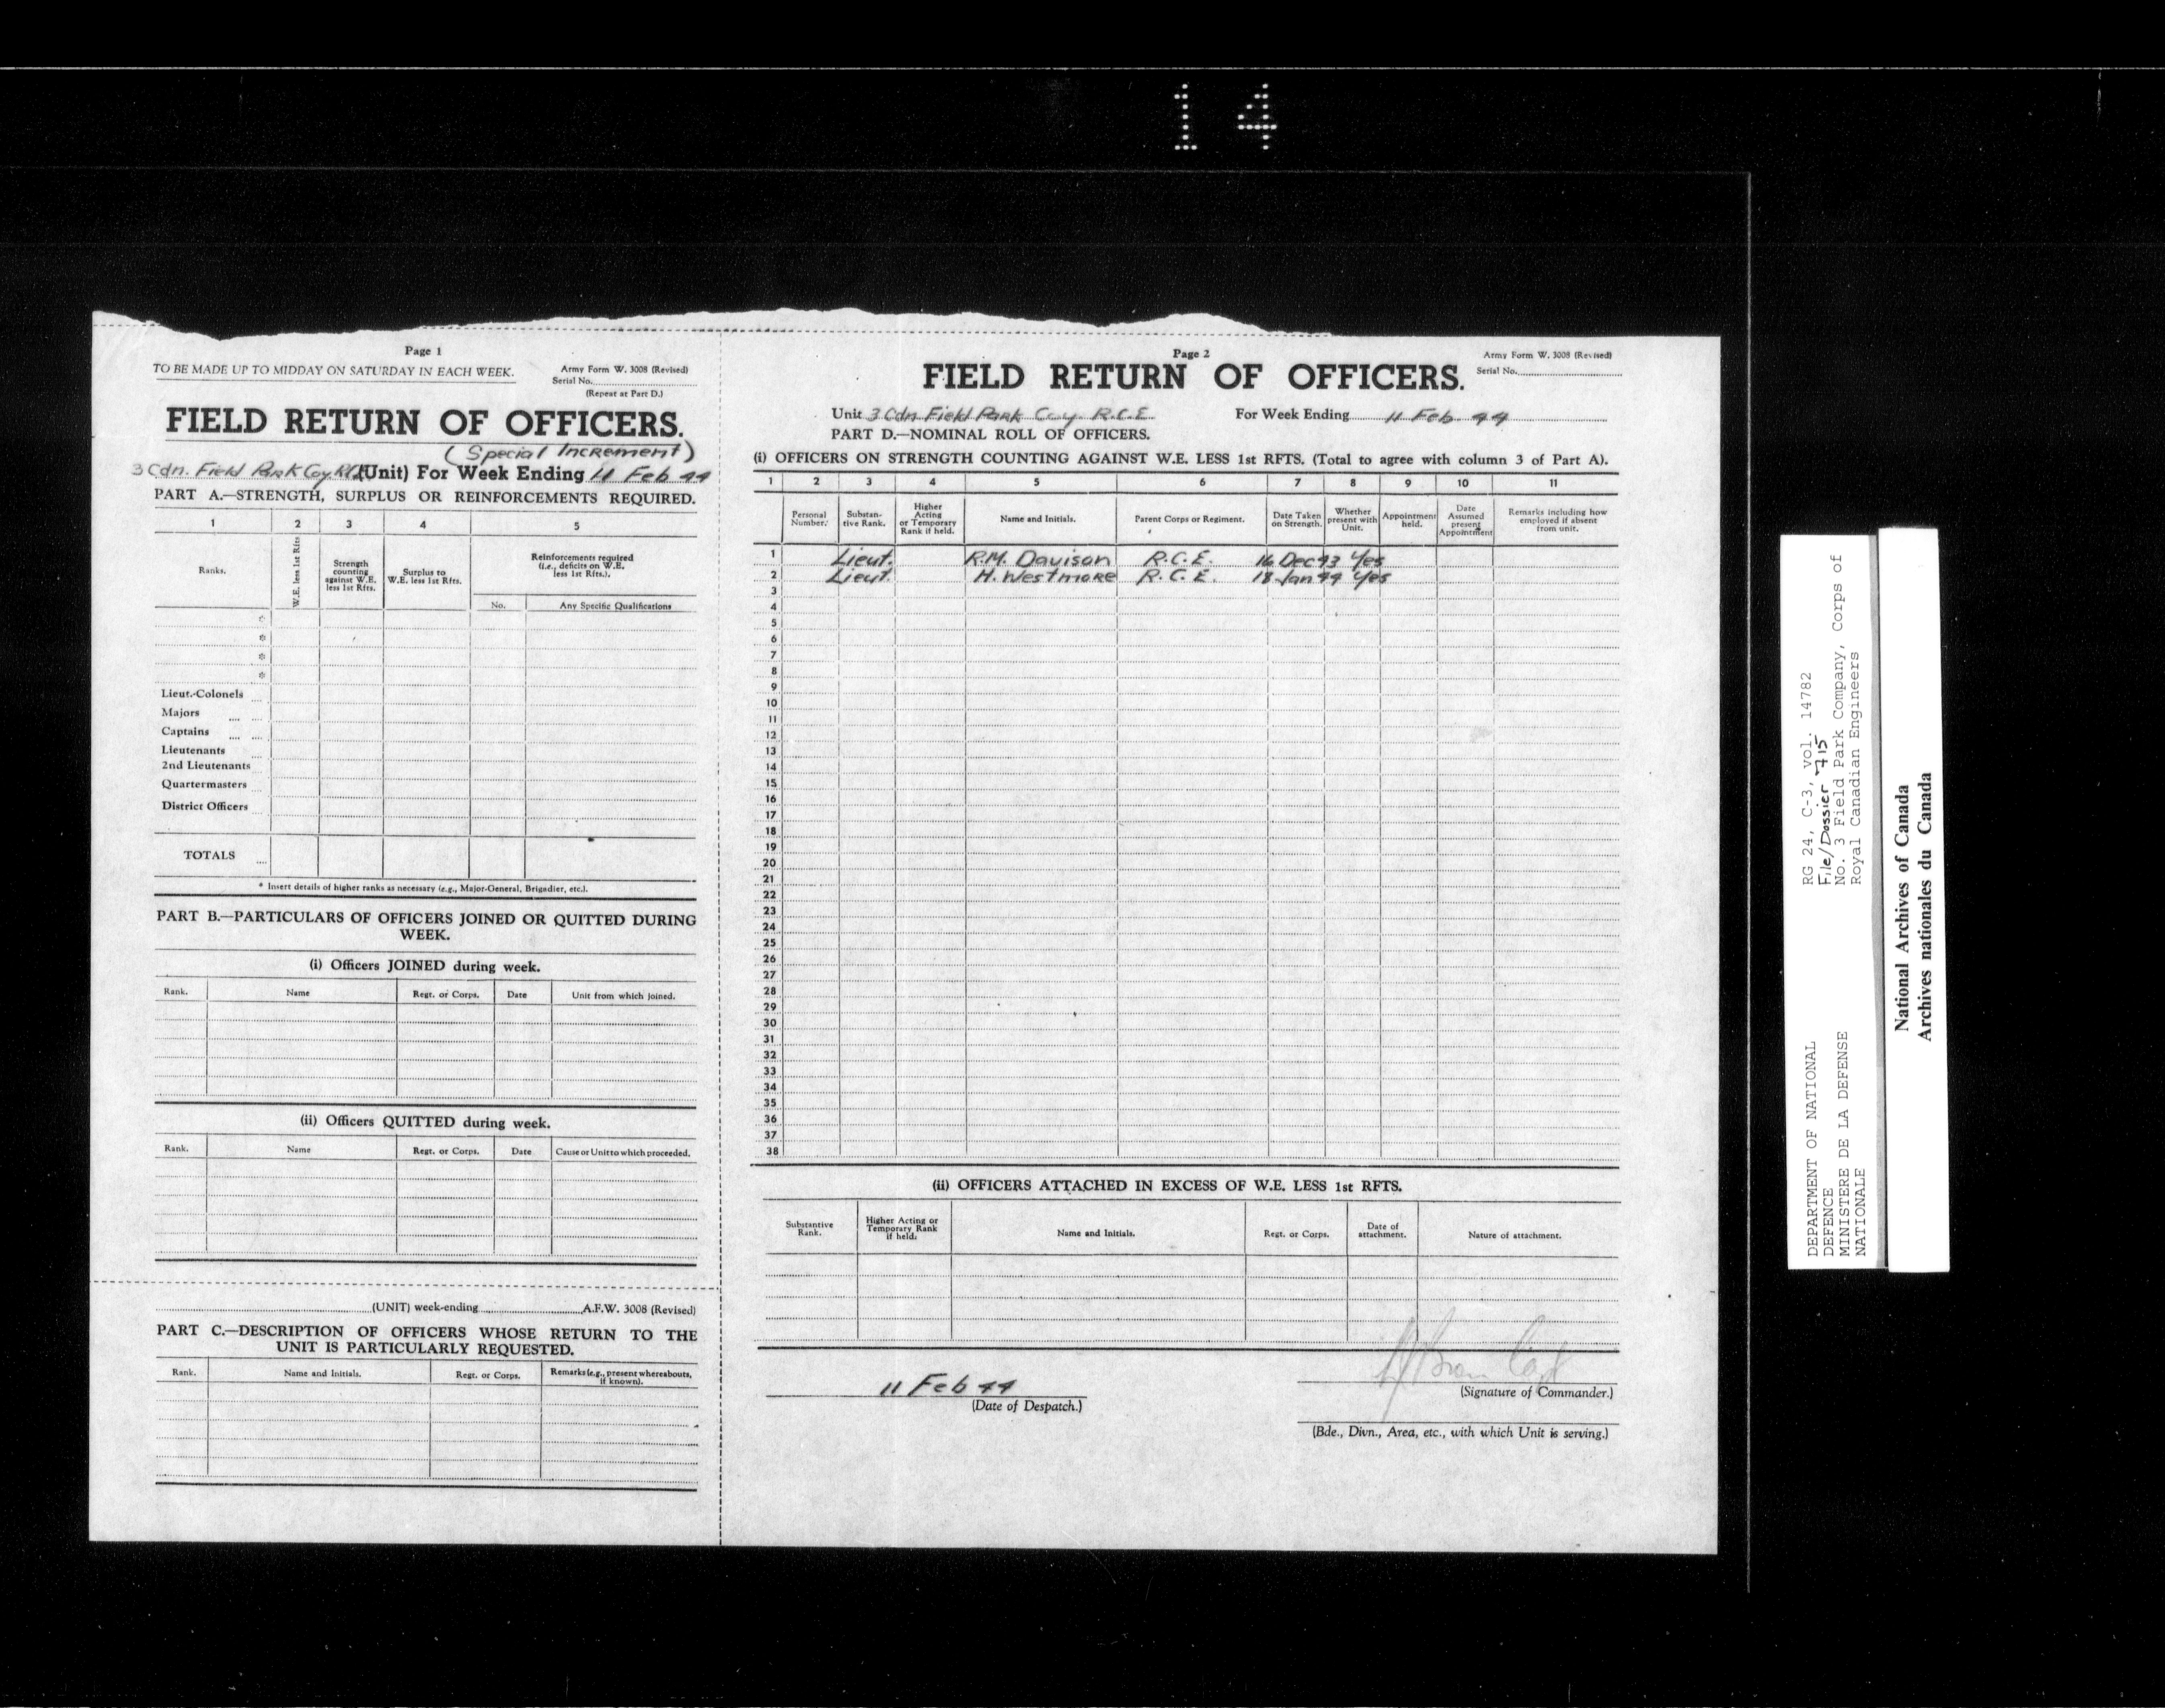 14
Page 1
TO BE MADE UP TO MIDDAY ON SATURDAY IN EACH WEEK.
Army Form W. 3008 (Revised)
Serial No.
(Repeat at Part D.)
FIELD RETURN OF OFFICERS.
(Special Increment)
3 Cdn. Field Park Coy RCE (Unit) For Week Ending 11 Feb 44
PART A.—STRENGTH, SURPLUS OR REINFORCEMENTS REQUIRED.
1 2 3 4 5
Ranks.
W.E. less 1st Rfts
Strength counting against W.E. less 1st Rfts.
Surplus to W.E. less 1st Rfts.
Reinforcements required (i.e., deficits on W.E. less 1st Rfts.).
No.
Any Specific Qualifications
*
*
*
*
Lieut.-Colonels
Majors
Captains
Lieutenants
2nd Lieutenants
Quartermasters
District Officers
TOTALS
* Insert details of higher ranks as necessary (e.g., Major-General, Brigadier, etc.).
PART B.—PARTICULARS OF OFFICERS JOINED OR QUITTED DURING
WEEK.
(i) Officers JOINED during week.
Rank. Name Regt. or Corps. Date Unit from which joined.
(ii) Officers QUITTED during week.
Rank. Name Regt. or Corps. Date Cause or Unit to which proceeded.
(UNIT) week-ending A.F.W. 3008 (Revised)
PART C.—DESCRIPTION OF OFFICERS WHOSE RETURN TO THE
UNIT IS PARTICULARLY REQUESTED.
Rank. Name and Initials. Regt. or Corps. Remarks (e.g., present whereabouts, if known).
Page 2
Army Form W. 3008 (Revised)
Serial No.
FIELD RETURN OF OFFICERS.
Unit 3 Cdn Field Park Coy R.C.E. For Week Ending 11 Feb 44
PART D.—NOMINAL ROLL OF OFFICERS.
(i) OFFICERS ON STRENGTH COUNTING AGAINST W.E. LESS 1st RFTS. (Total to agree with column 3 of Part A).
1 2 3 4 5 6 7 8 9 10 11
Personal Number.
Substantive Rank.
Higher Acting or Temporary Rank if held.
Name and Initials.
Parent Corps or Regiment.
Date Taken on Strength.
Whether present with Unit.
Appointment held.
Date Assumed present Appointment
Remarks including how employed if absent from unit.
1 Lieut. R.M. Davison R.C.E. 16 Dec 43 Yes
2 Lieut. H. Westmore R.C.E. 18 Jan 44 Yes
3
4
5
6
7
8
9
10
11
12
13
14
15
16
17
18
19
20
21
22
23
24
25
26
27
28
29
30
31
32
33
34
35
36
37
38
(ii) OFFICERS ATTACHED IN EXCESS OF W.E. LESS 1st RFTS.
Substantive Rank.
Higher Acting or Temporary Rank if held.
Name and Initials.
Regt. or Corps.
Date of attachment.
Nature of attachment.
11 Feb 44
(Date of Despatch.)
(Signature of Commander.)
(Bde., Divn., Area, etc., with which Unit is serving.)
DEPARTMENT OF NATIONAL
DEFENCE
MINISTERE DE LA DEFENSE
NATIONALE
RG 24, C-3, vol. 14782
File/Dossier 715
No. 3 Field Park Company, Corps of
Royal Canadian Engineers
National Archives of Canada
Archives nationales du Canada